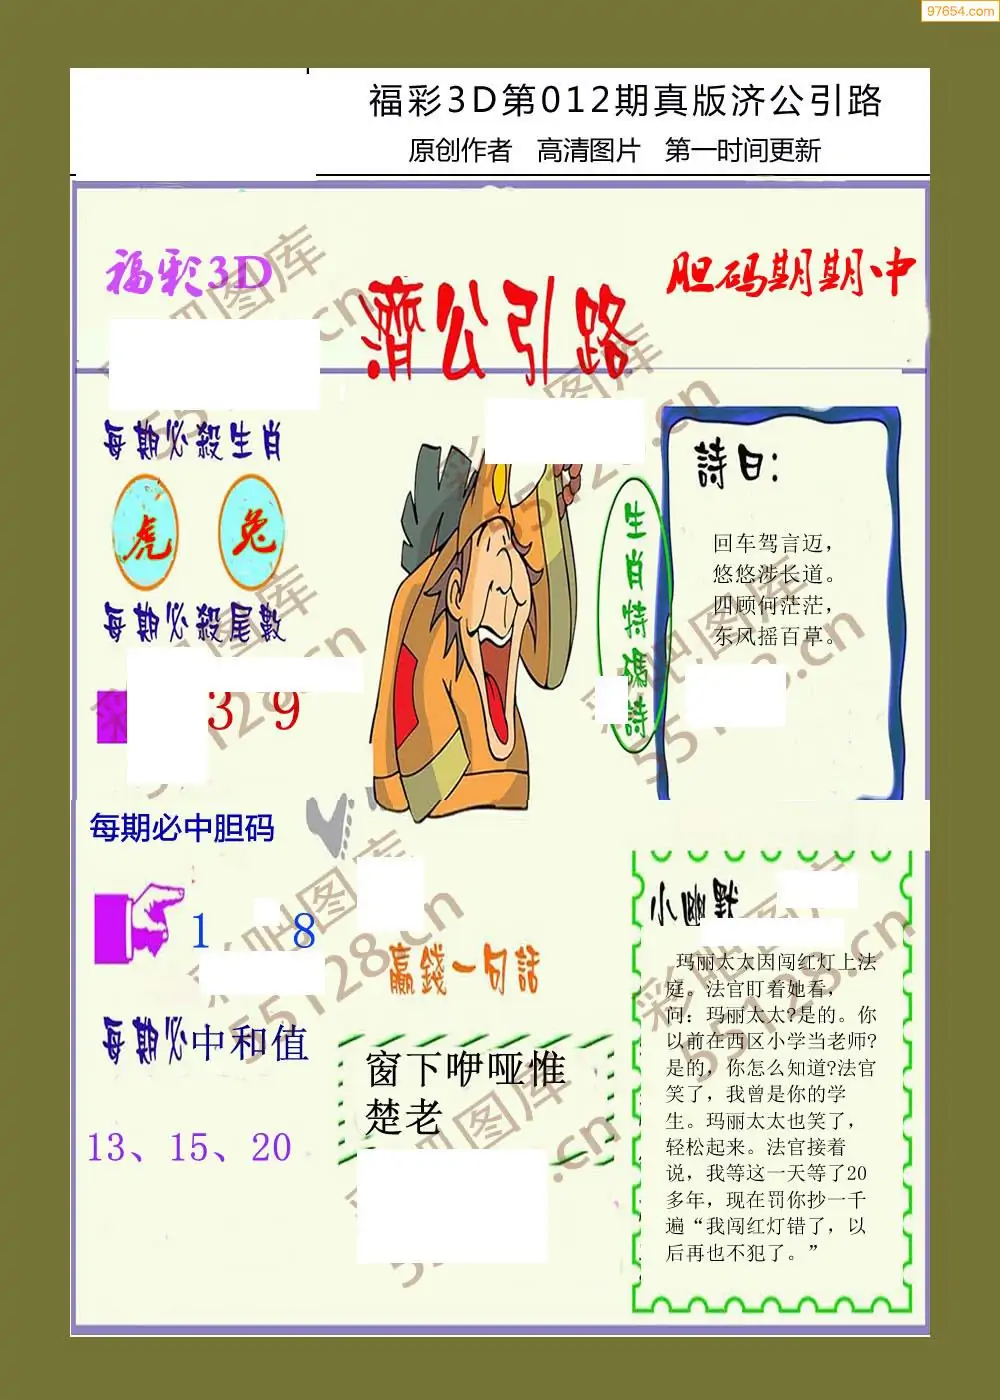 97654.com
福彩3D第012期真版济公引路
原创作者 高清图片 第一时间更新
福彩3D
濟公引路
胆码期期中
每期必殺生肖
虎 兔
每期必殺尾數
3 9
每期必中胆码
1 8
每期必中和值
13、15、20
生肖特碼詩
詩曰:
回车驾言迈，
悠悠涉长道。
四顾何茫茫，
东风摇百草。
赢錢一句話
窗下咿哑惟
楚老
小幽默
玛丽太太因闯红灯上法
庭。法官盯着她看，
问：玛丽太太?是的。你
以前在西区小学当老师?
是的，你怎么知道?法官
笑了，我曾是你的学
生。玛丽太太也笑了，
轻松起来。法官接着
说，我等这一天等了20
多年，现在罚你抄一千
遍“我闯红灯错了，以
后再也不犯了。”
彩吧图库
55128.cn